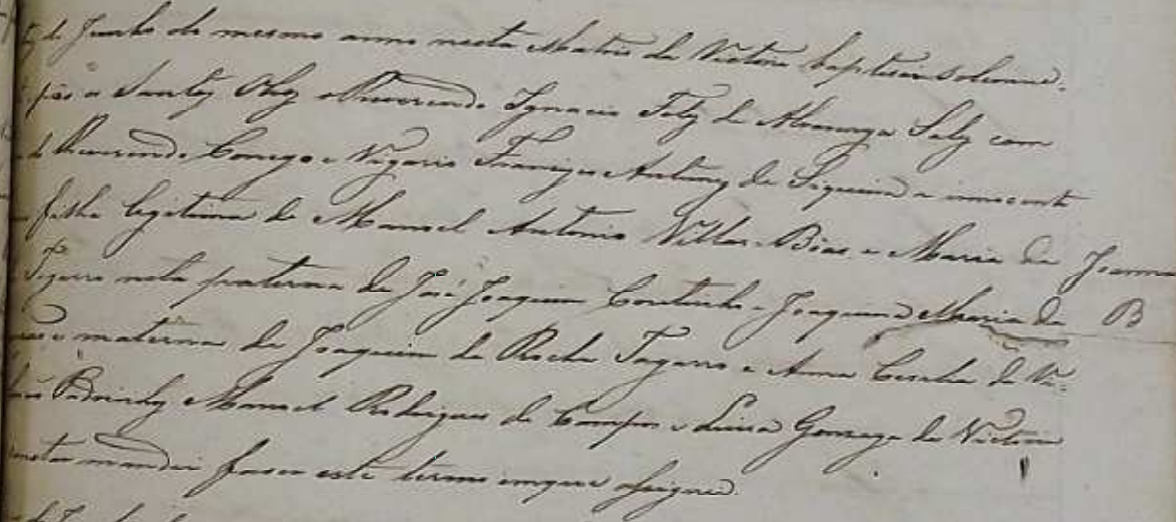 de Junho do mesmo anno nesta Matris da Victoria baptisou solemne-
e pôs os Santos Oleos o Reverendo Ignacio Felix de Alvarenga Salles com
do Reverendo Conego e Vigario Francisco Antunes de Siqueira a innocente
filha legitima de Manoel Antonio Villas-Bôas e Maria da Joanna
neta paterna de José Joaquim Coutinho e Joaquina Maria da B
e materna de Joaquim da Rocha Tagarro e Anna Cecilia da Vi-
Padrinhos Manoel Rodrigues de Campos e Luisa Gonzaga da Victoria
mandei faser este termo em que assignei.